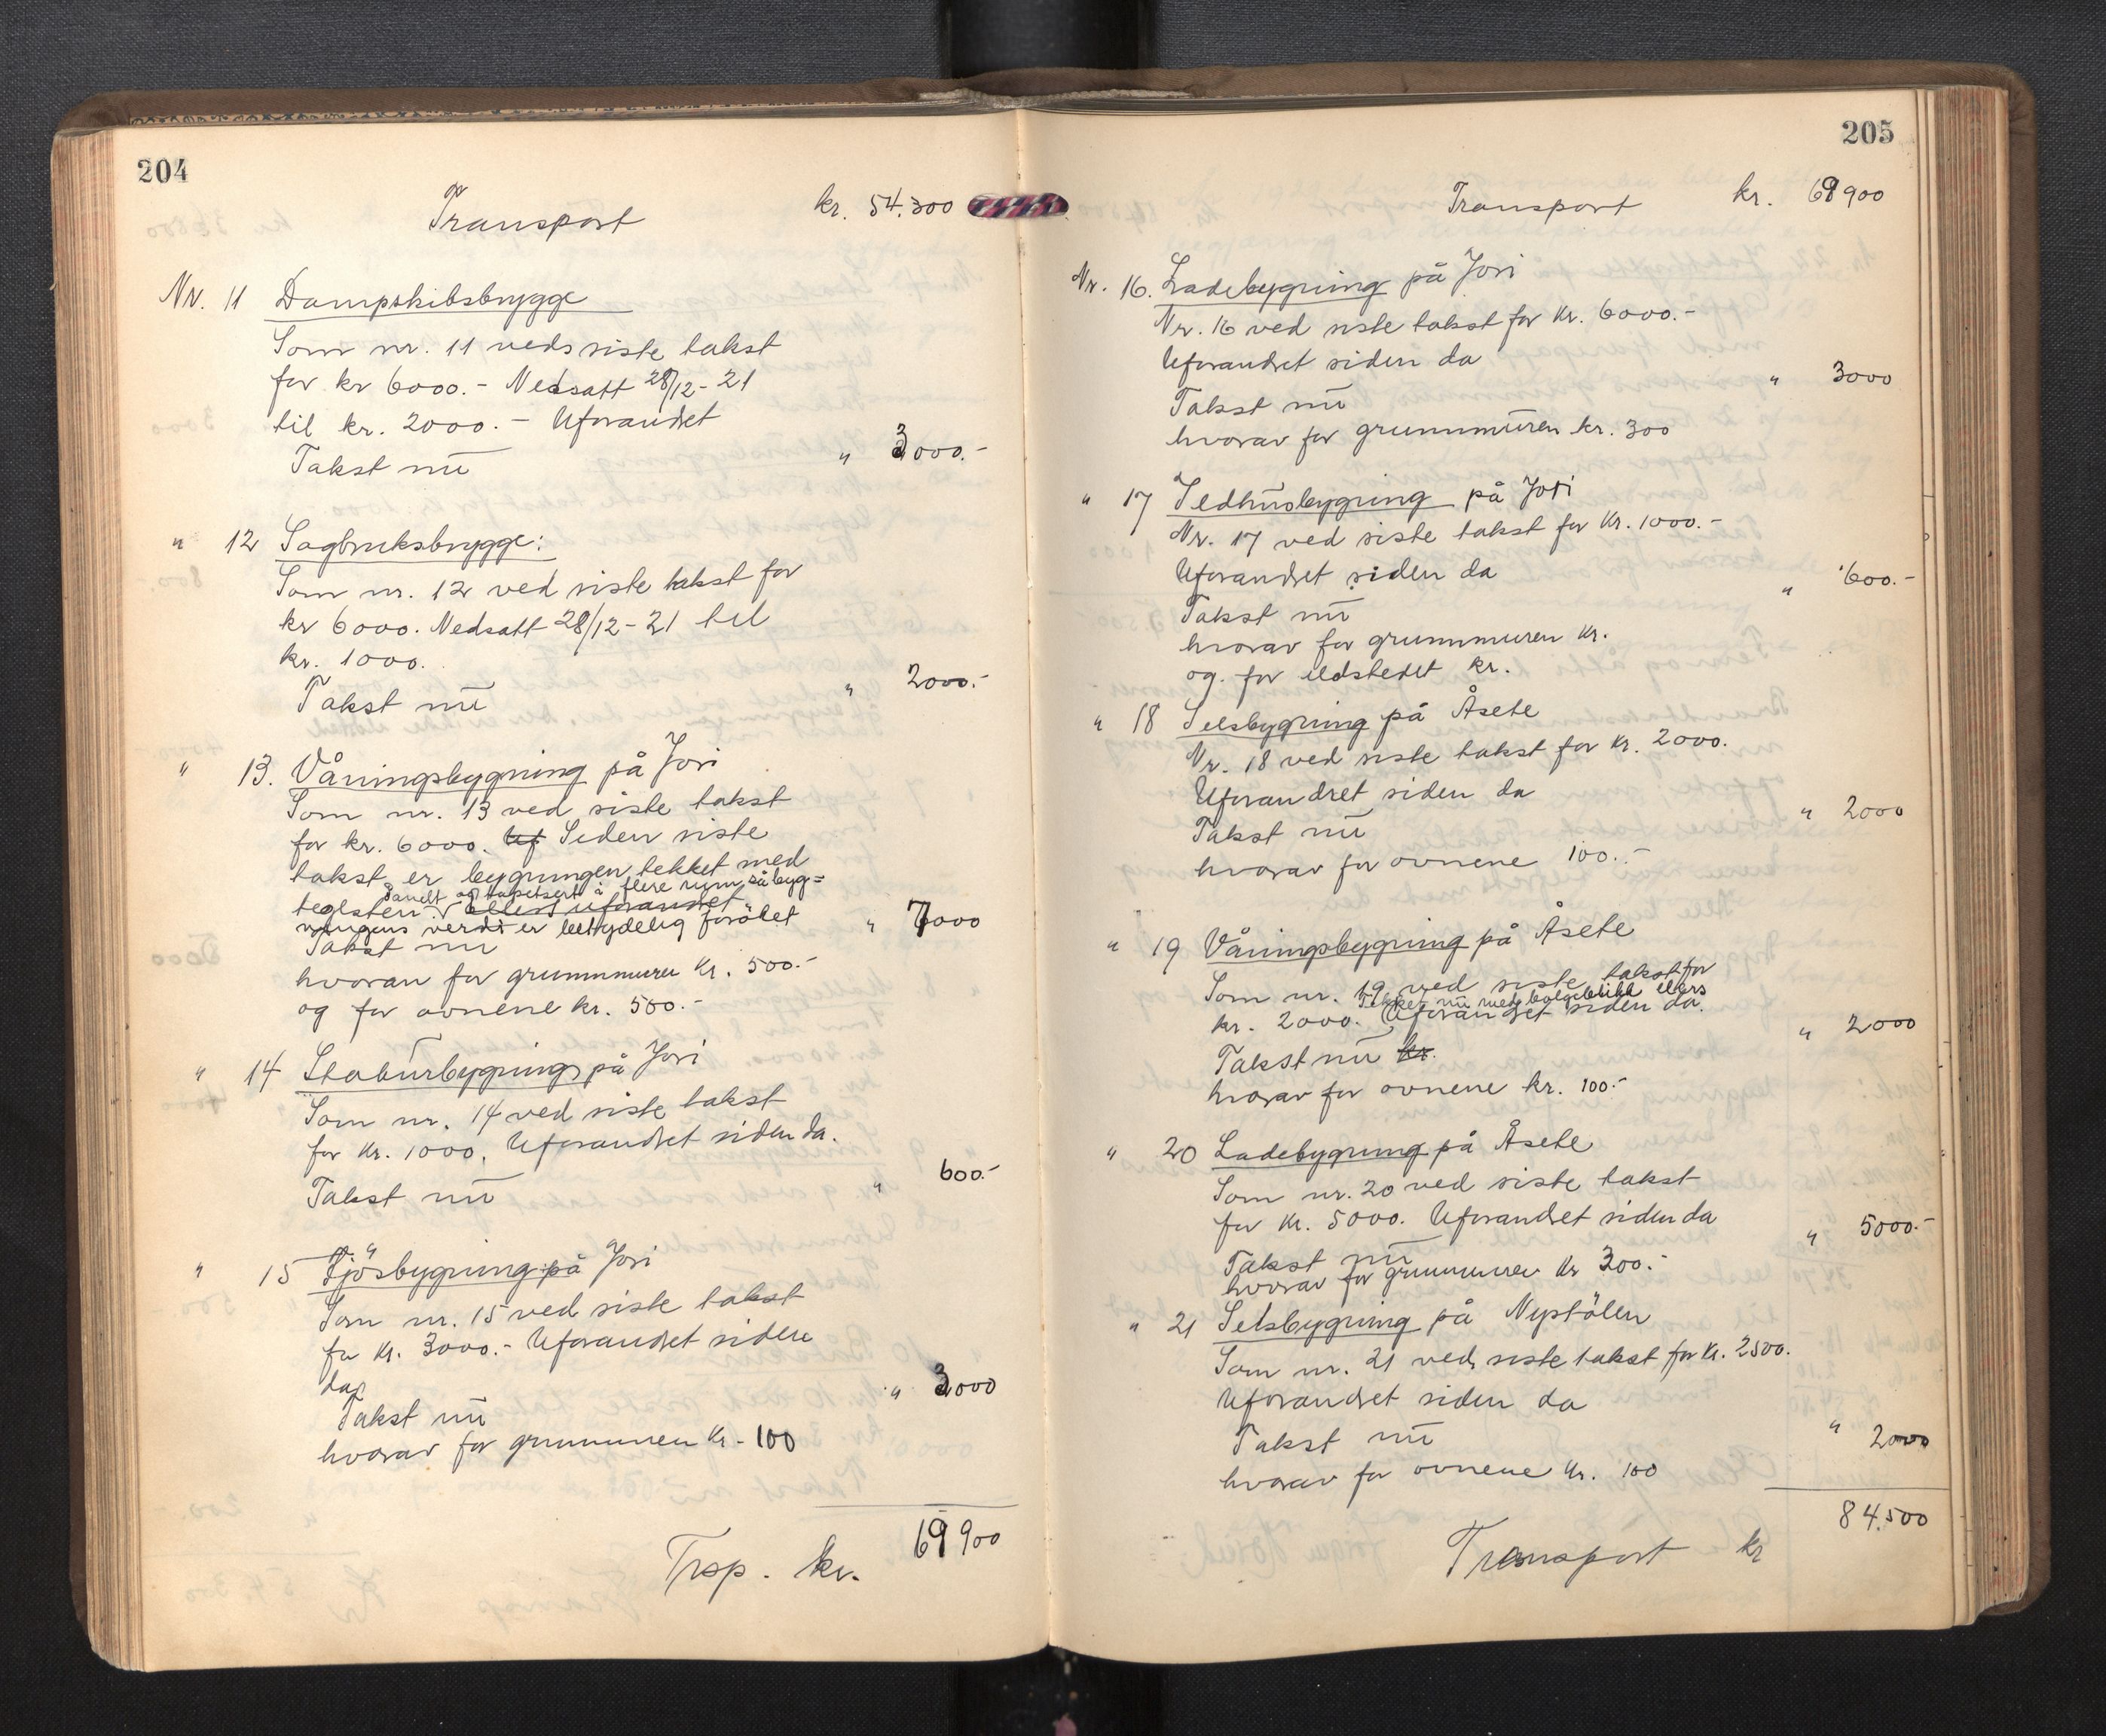 204
Transport kr. 54.300
Nr. 11 Dampskibsbrygge
Som nr. 11 ved siste takst
for kr 6000.- Nedsatt 28/12-21
til kr. 2000.- Uforandret
Takst nu " 3000.-
" 12 Sagbruksbrygge:
Som nr. 12 ved siste takst for
kr 6000. Nedsatt 28/12-21 til
kr. 1000.
Takst nu " 2000.-
" 13. Våningsbygning på Jori
Som nr. 13 ved siste takst
for kr. 6000. Uf Siden siste
takst er bygningen tekket med
panelt og tapetsert i flere rum så byg=
teglsten. Ellers uforandret
ningens verdi er betydelig foröket " 7000
Takst nu
hvorav for grunnmuren kr. 500.-
og for ovnene kr. 500.-
" 14 Stabursbygning på Jori
Som nr. 14 ved siste takst
for kr. 1000. Uforandret siden da.
Takst nu " 600.-
" 15 Fjösbygning på Jori
Som nr. 15 ved siste takst
for kr. 3000.- Uforandret siden
da
Takst nu " 3000
hvorav for grunnmuren kr. 100
Trsp. kr. 69 900
205
Transport kr. 69 900
Nr. 16. Ladebygning på Jori
Nr. 16 ved siste takst for kr. 6000.-
Uforandret siden da
Takst nu " 3000
hvorav for grunnmuren kr. 300
" 17 Ildhusbygning på Jori
Nr. 17 ved siste takst for kr. 1000.-
Uforandret siden da
Takst nu " 600.-
hvorav for grunnmuren kr.
og for ildstedet kr.
" 18 Selsbygning på Åsete
Nr. 18 ved siste takst for kr. 2000.
Uforandret siden da
Takst nu " 2000
hvorav for ovnene 100.-
" 19 Våningsbygning på Åsete
Som nr. 19 ved siste takst for
Tekket nu med bølgeblikk ellers
kr. 2000. Uforandret siden da.
Takst nu kr. " 2000
hvorav for ovnene kr. 100.-
" 20 Ladebygning på Åsete
Som nr. 20 ved siste takst
for kr. 5000. Uforandret siden da
Takst nu " 5000.-
hvorav for grunnmuren kr 300.-
" 21 Selsbygning på Nystölen
Som nr. 21 ved siste takst for kr. 2500.
Uforandret siden da
Takst nu " 2000
hvorav for ovnene kr. 100
Transport kr 84.500